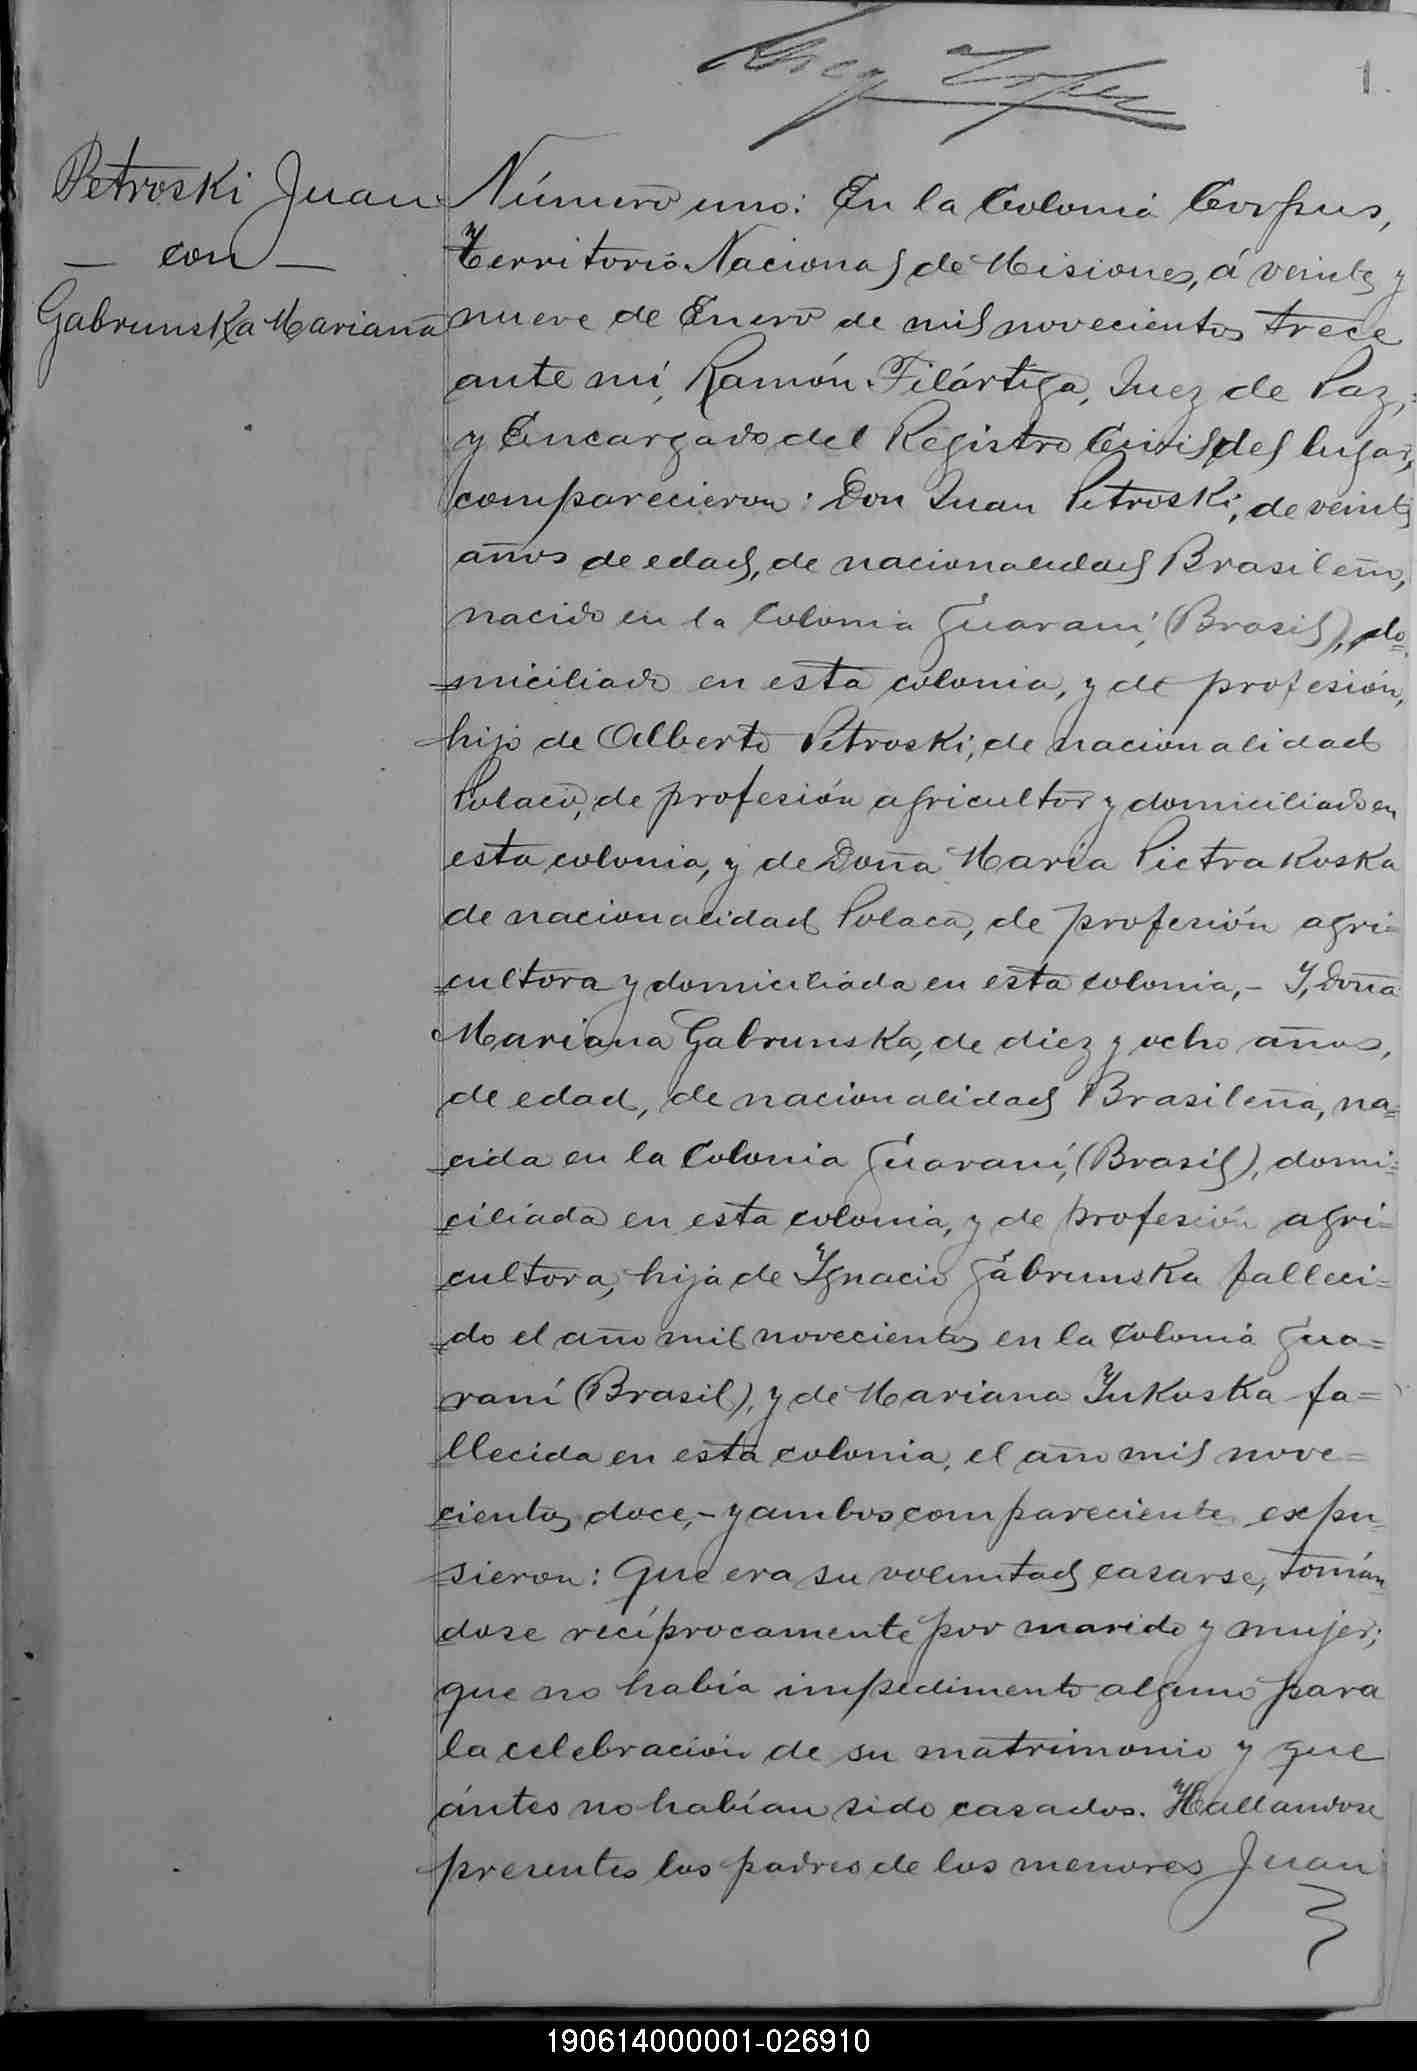 1.
Petroski Juan
— con —
Gabrunska Mariana
Número uno: En la Colonia Corpus,
Territorio Nacional de Misiones, á veinte y
nueve de Enero de mil novecientos trece
ante mí, Ramón Filártiga, Juez de Paz,=
y Encargado del Registro Civil del lugar,
comparecieron: Don Juan Petroski, de veinte
años de edad, de nacionalidad Brasileño,
nacido en la Colonia Guaraní, (Brasil), do=
=miciliado en esta colonia, y de profesión,
hijo de Alberto Petroski, de nacionalidad
Polaco, de profesión agricultor y domiciliado en
esta colonia, y de Doña Maria Pietrakoska
de nacionalidad Polaca, de profesión agri=
=cultora y domiciliada en esta colonia,- Y, Doña
Mariana Gabrunska, de diez y ocho años,
de edad, de nacionalidad Brasileña, na=
=cida en la Colonia Guaraní, (Brasil), domi=
=ciliada en esta colonia, y de profesión agri=
=cultora, hija de Ygnacio Gabrunska falleci=
=do el año mil novecientos en la Colonia Gua=
raní (Brasil), y de Mariana Yukoska fa=
=llecida en esta colonia, el año mil nove=
=cientos doce,- y ambos compareciente expu=
=sieron: Que era su voluntad casarse, tomán
dose recíprocamente por marido y mujer;
que no había impedimento alguno para
la celebración de su matrimonio y que
ántes no habían sido casados. Hallandose
presentes los padres de los menores Juan
190614000001-026910